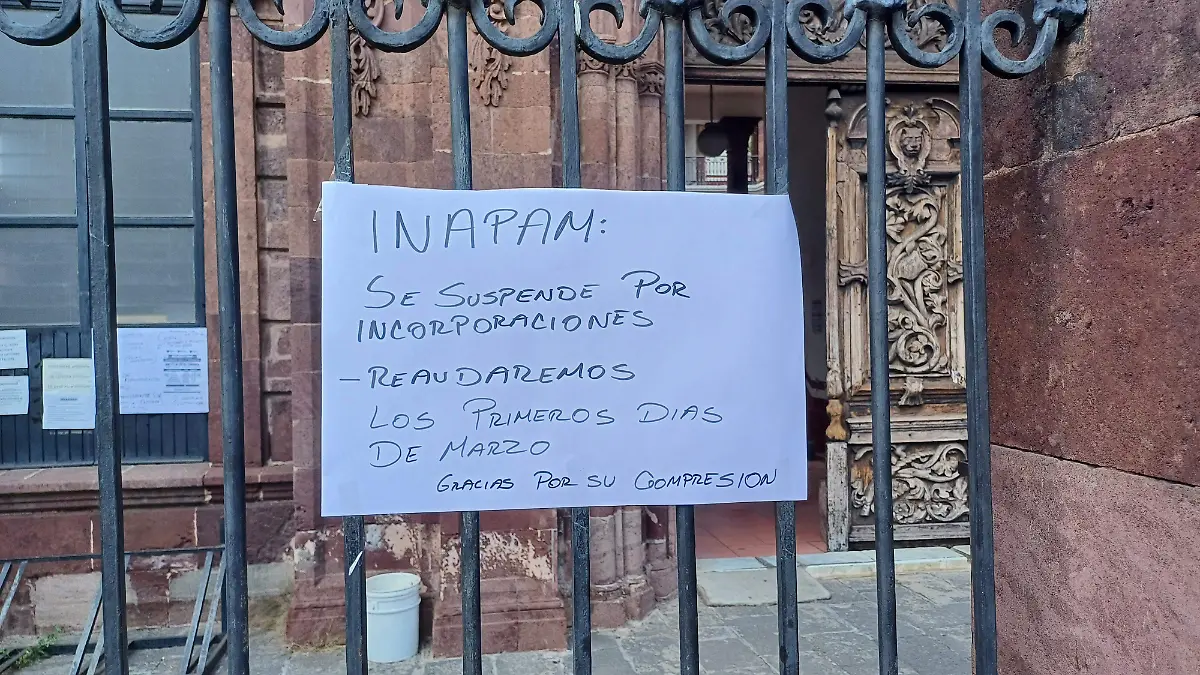 INAPAM:
SE SUSPENDE POR
INCORPORACIONES
- REAUDAREMOS
LOS PRIMEROS DIAS
DE MARZO
GRACIAS POR SU COOMPRESION